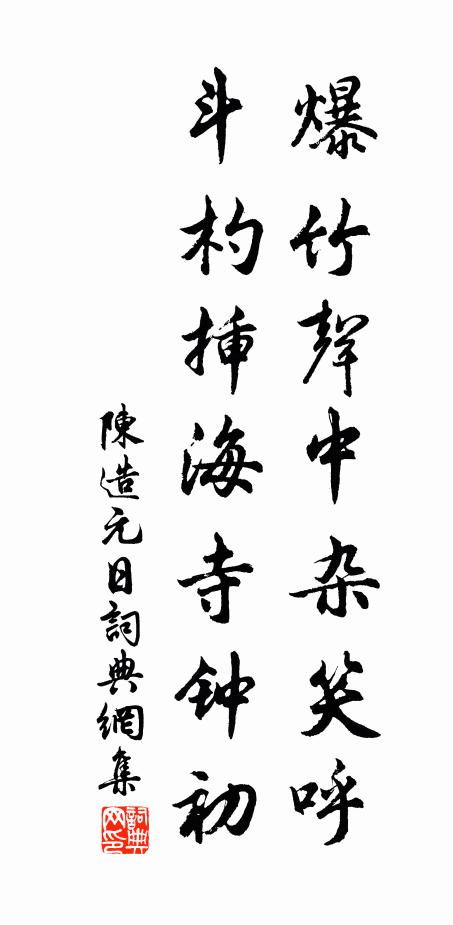 爆竹聲中杂笑呼
斗杓挿海寺钟初
陳造元日詞典網集
詞典网印